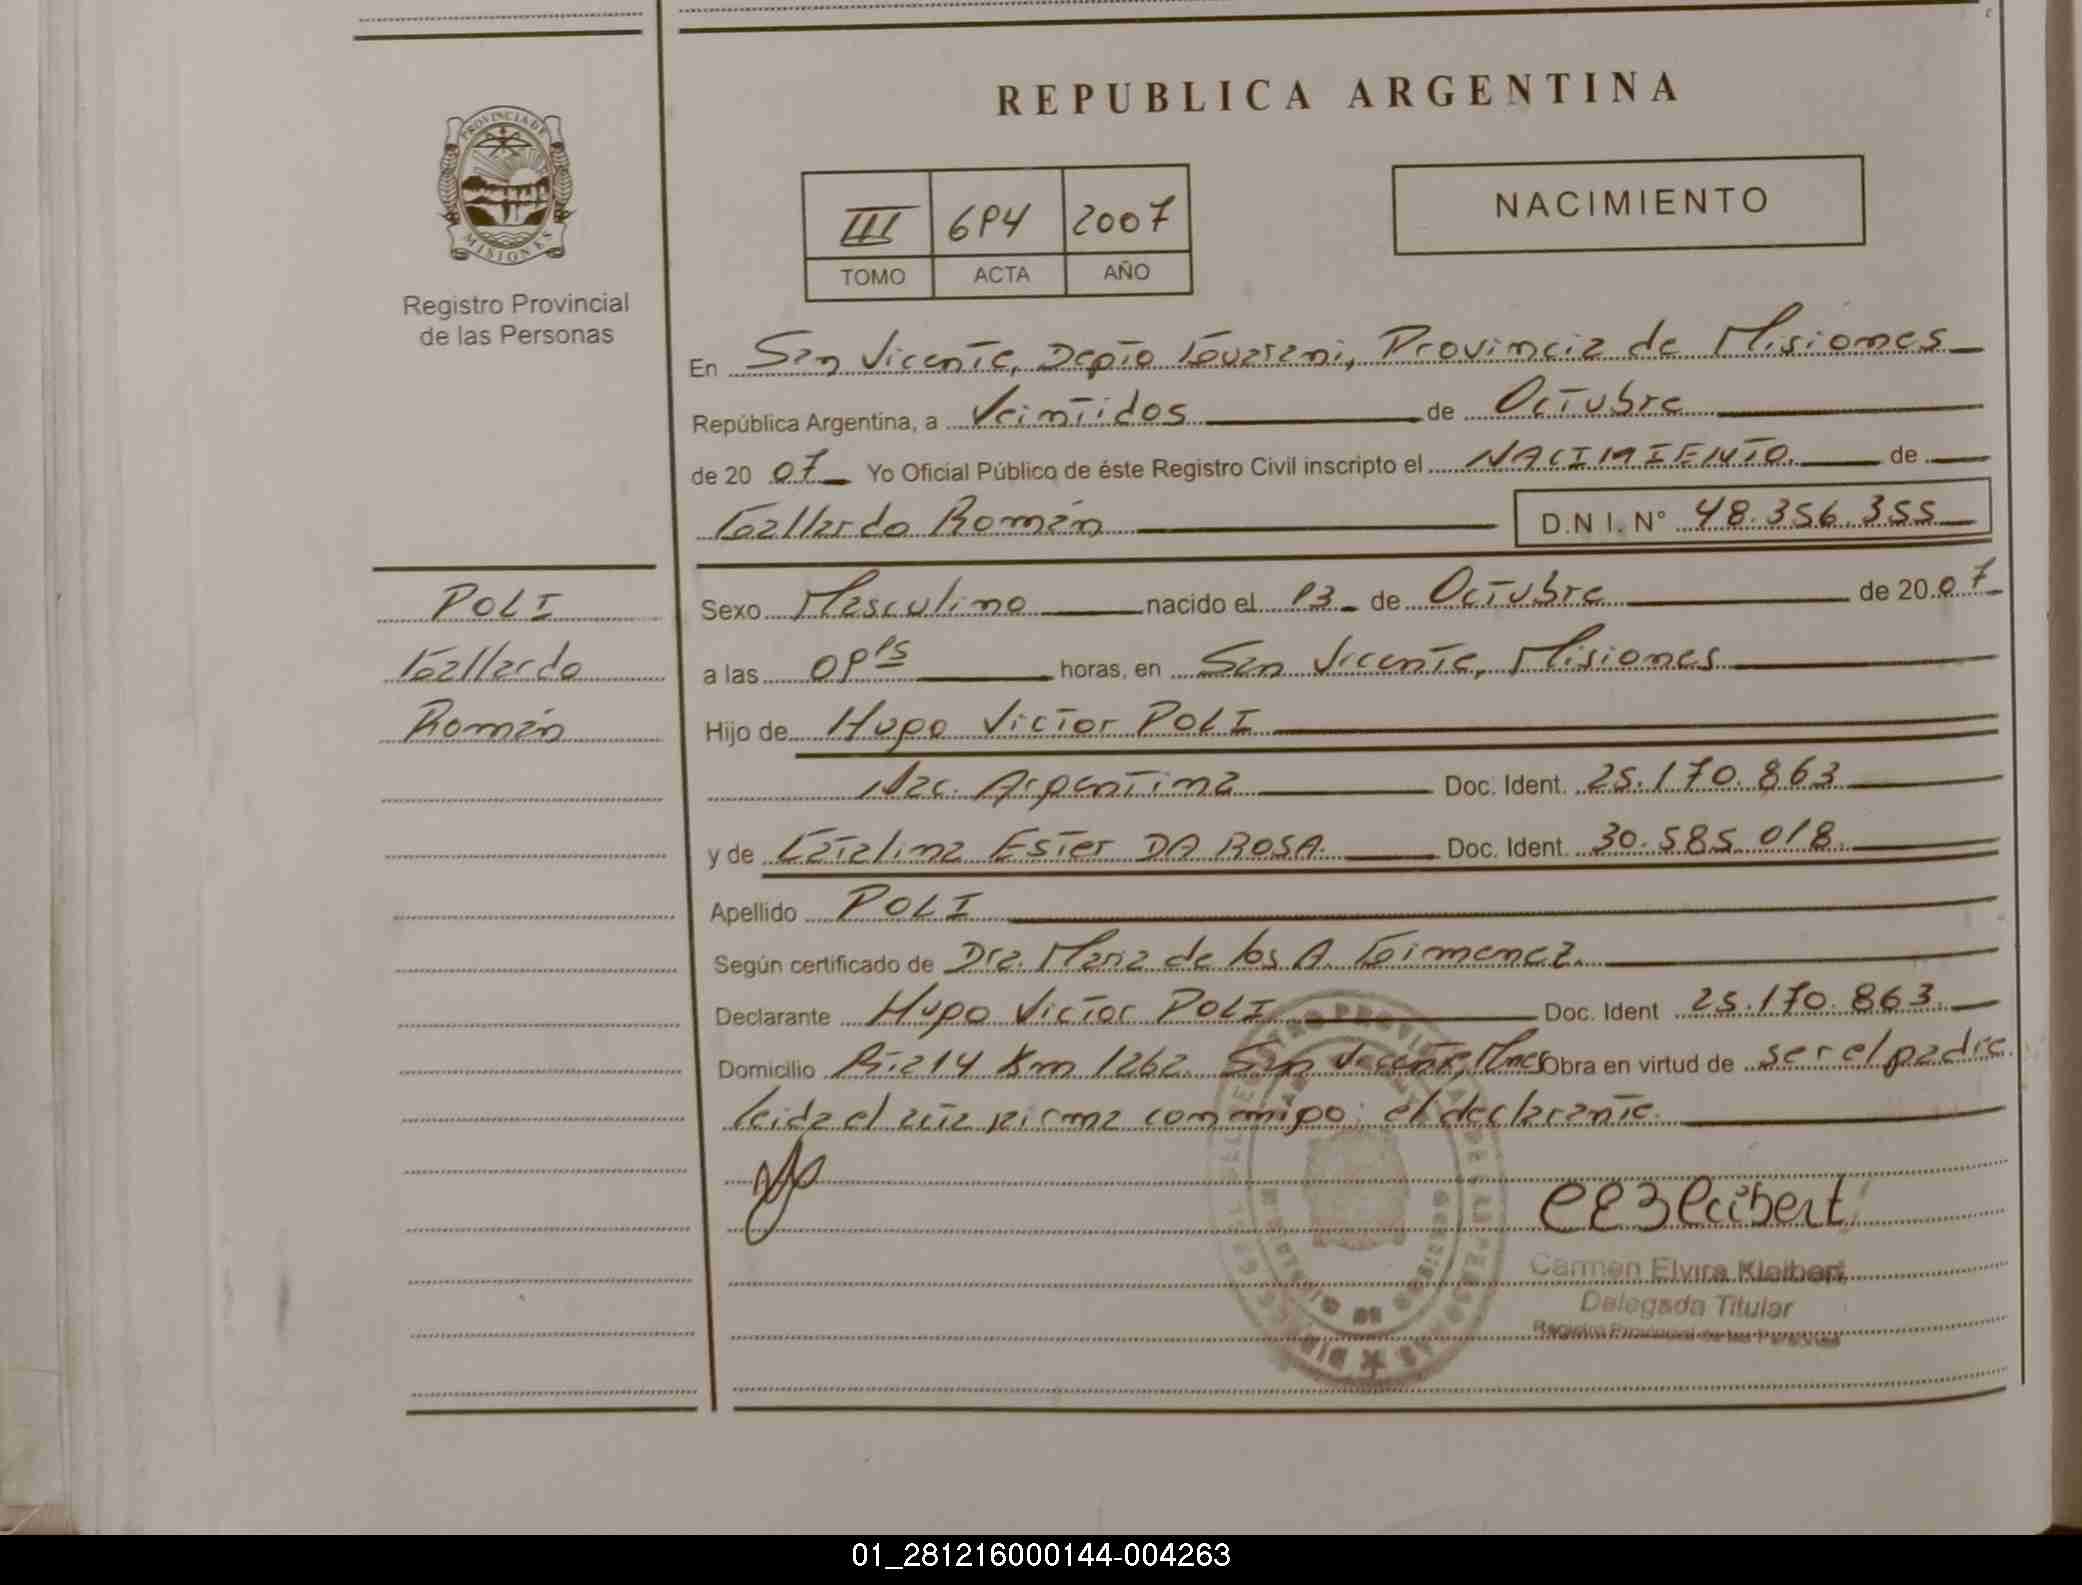 REPUBLICA ARGENTINA
PROVINCIA DE
MISIONES
Registro Provincial
de las Personas
III 694 2007
TOMO ACTA AÑO
NACIMIENTO
En San Vicente, Depto Guarani, Provincia de Misiones
República Argentina, a Veintidos de Octubre
de 20 07 Yo Oficial Público de éste Registro Civil inscripto el NACIMIENTO. de
Gallardo Román D.N I. N° 48.356.355
POLI
Gallardo
Román
Sexo Masculino nacido el 13 de Octubre de 20 07
a las 09 15 horas, en San Vicente, Misiones
Hijo de Hugo Victor POLI
Nac. Argentina Doc. Ident. 25.170.863
y de Catalina Ester DA ROSA. Doc. Ident. 30.585.018.
Apellido POLI
Según certificado de Dra. Maria de los A. Gimenez.
Declarante Hugo Victor POLI Doc. Ident 25.170.863.
Domicilio 14 Km 1262 San Vicente, Mnes Obra en virtud de ser el padre
leida el acta firma conmigo: el declarante.
Carmen Elvira Kleibert
Delegada Titular
Registro Provincial de las Personas
01_281216000144-004263